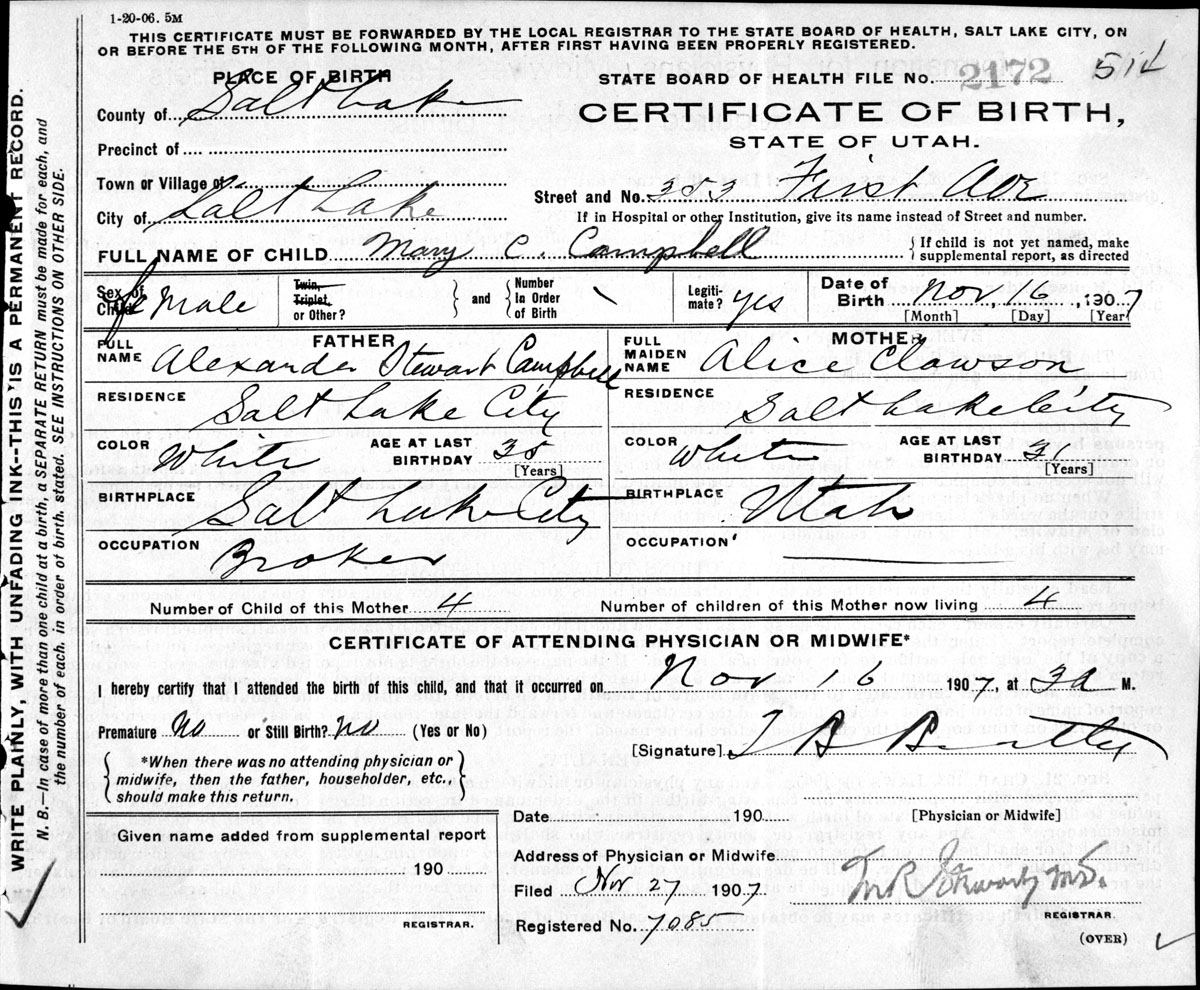 1-20-06. 5M
THIS CERTIFICATE MUST BE FORWARDED BY THE LOCAL REGISTRAR TO THE STATE BOARD OF HEALTH, SALT LAKE CITY, ON
OR BEFORE THE 5TH OF THE FOLLOWING MONTH, AFTER FIRST HAVING BEEN PROPERLY REGISTERED.
PLACE OF BIRTH
STATE BOARD OF HEALTH FILE No. 2172
County of Salt Lake
CERTIFICATE OF BIRTH,
Precinct of
STATE OF UTAH.
Town or Village of
Street and No. 353 First Ave
City of Salt Lake
If in Hospital or other Institution, give its name instead of Street and number.
FULL NAME OF CHILD Mary C. Campbell
{ If child is not yet named, make
supplemental report, as directed
Sex of Child feMale
Twin, Triplet, or Other?
} and { Number In Order of Birth
Legiti-mate? yes
Date of Birth Nov, 16, 1907
[Month] [Day] [Year]
FATHER
FULL NAME Alexander Stewart Campbell
RESIDENCE Salt Lake City
COLOR White AGE AT LAST BIRTHDAY 35 [Years]
BIRTHPLACE Salt Lake City
OCCUPATION Broker
MOTHER
FULL MAIDEN NAME Alice Clawson
RESIDENCE Salt Lake City
COLOR White AGE AT LAST BIRTHDAY 31 [Years]
BIRTHPLACE Utah
OCCUPATION
Number of Child of this Mother 4 Number of children of this Mother now living 4
CERTIFICATE OF ATTENDING PHYSICIAN OR MIDWIFE*
I hereby certify that I attended the birth of this child, and that it occurred on Nov 16 1907, at 3a M.
Premature No or Still Birth? No (Yes or No)
[Signature]
{ *When there was no attending physician or
midwife, then the father, householder, etc.,
should make this return. }
Date 190
[Physician or Midwife]
Given name added from supplemental report
190
REGISTRAR.
Address of Physician or Midwife
Filed Nov 27 1907
Registered No. 7085
REGISTRAR.
(OVER)
WRITE PLAINLY, WITH UNFADING INK--THIS IS A PERMANENT RECORD.
N. B.--In case of more than one child at a birth, a SEPARATE RETURN must be made for each, and
the number of each, in order of birth, stated. SEE INSTRUCTIONS ON OTHER SIDE.